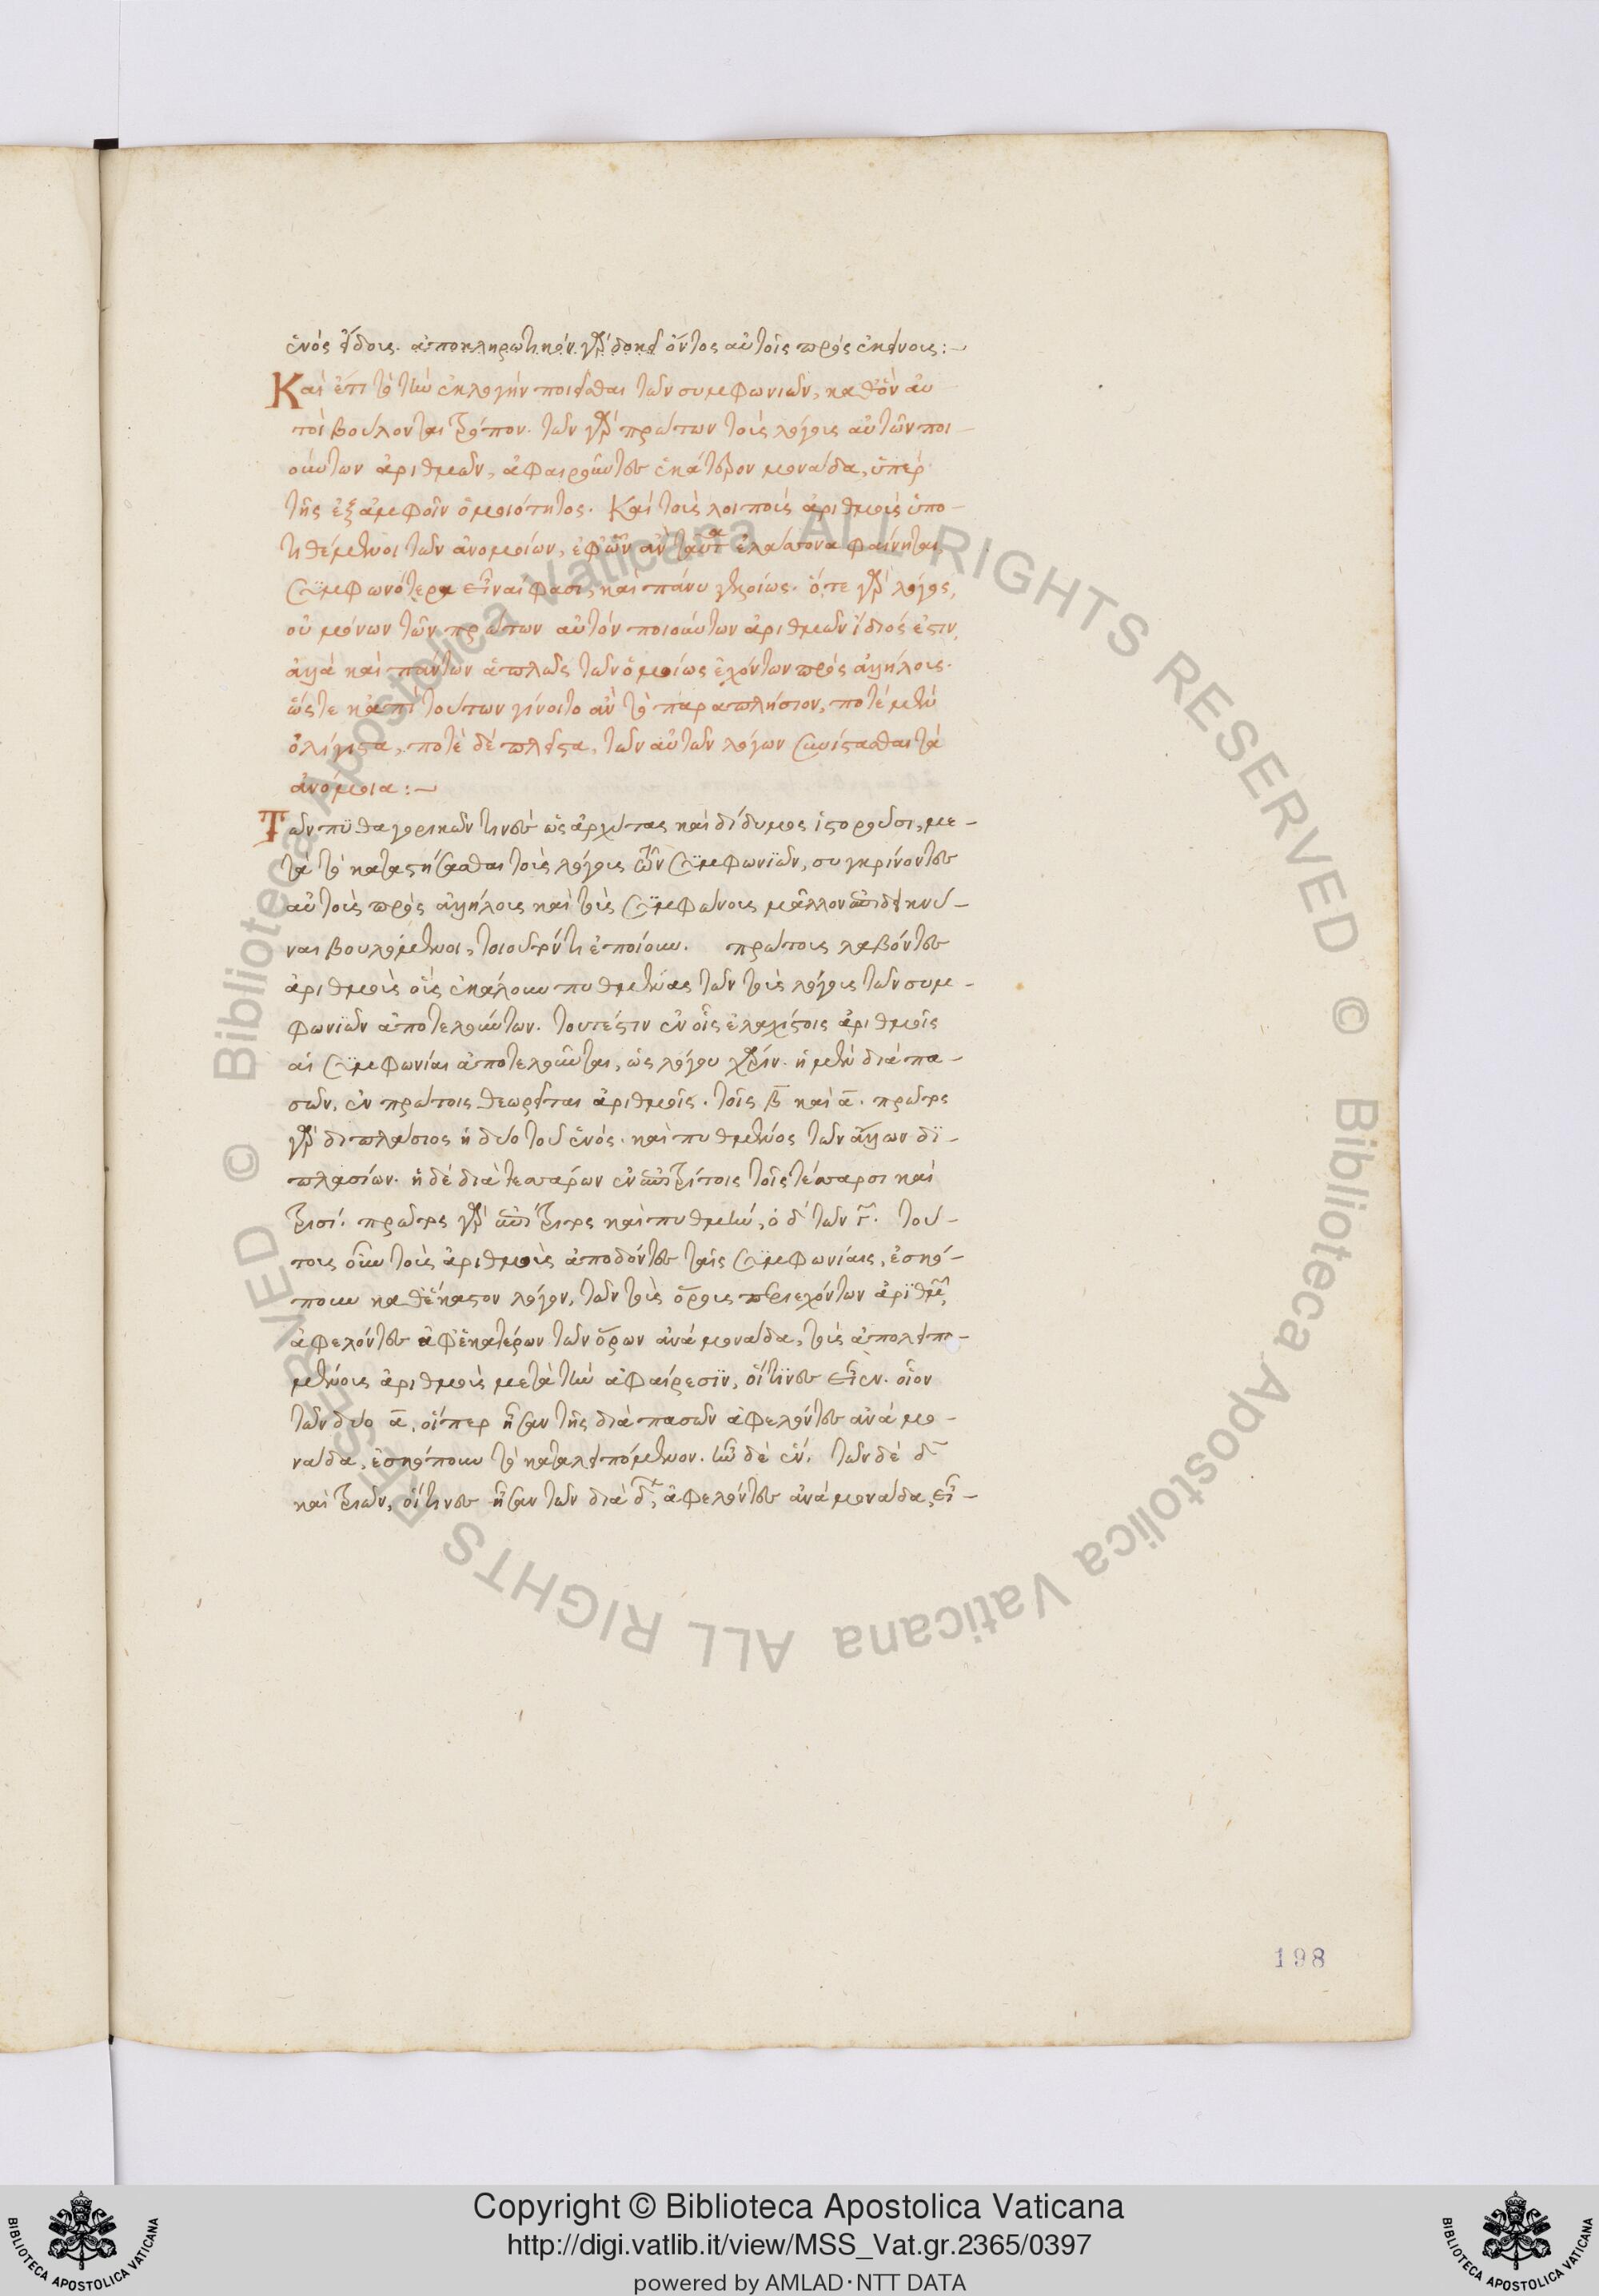 ἑνὸς εἴδους. ἀποκληρωτικὸν γὰρ δοκεῖ ὄντος αὐτοῖς πρὸς ἐκείνους :—
Καὶ ἔτι τὸ τὴν ἐκλογὴν ποιεῖσθαι τῶν συμφωνιῶν, καθ' ὃν αὐ
τοὶ βούλονται τρόπον. τῶν γὰρ πρώτων τοὺς λόγους αὐτῶν ποι–
ούντων ἀριθμῶν, ἀφαιροῦντες ἑκάτερον μονάδα, ὑπὲρ
τῆς ἐξ ἀμφοῖν ὁμοιότητος. Καὶ τοὺς λοιποὺς ἀριθμοὺς ὑπο–
τιθέμενοι τῶν ἀνομοίων, ἐφ' ὧν ἂν ταῦτα ἐλάσσονα φαίνηται,
συμφωνότερα εἶναί φασι, καὶ πάνυ γελοίως. ὅτε γὰρ λόγος,
οὐ μόνων τῶν πρώτων αὐτὸν ποιούντων ἀριθμῶν ἴδιός ἐστιν,
ἀλλὰ καὶ πάντων ἁπλῶς τῶν ὁμοίως ἐχόντων πρὸς ἀλλήλους.
ὥστε κἀπὶ τούτων γίνοιτο ἂν τὸ παραπλήσιον, ποτὲ μὲν
ὀλίγιστα, ποτὲ δὲ πλεῖστα, τῶν αὐτῶν λόγων συνίστασθαι τὰ
ἀνόμοια :—
Τῶν πυθαγορικῶν τινες ὡς ἀρχύτας καὶ δίδυμος ἱστοροῦσι, με–
τὰ τὸ καταστήσασθαι τοὺς λόγους τῶν συμφωνιῶν, συγκρίνοντες
αὐτοὺς πρὸς ἀλλήλους καὶ τοὺς συμφώνους μᾶλλον ἐπιδεικνύ–
ναι βουλόμενοι, τοιοῦτόν τι ἐποίουν. πρώτους λαβόντες
ἀριθμοὺς οὓς ἐκάλουν πυθμένας τῶν τοὺς λόγους τῶν συμ–
φωνιῶν ἀποτελούντων. τουτέστιν ἐν οἷς ἐλαχίστοις ἀριθμοῖς
αἱ συμφωνίαι ἀποτελοῦνται, ὡς λόγου χάριν. ἡ μὲν διὰ πα–
σῶν, ἐν πρώτοις θεωρεῖται ἀριθμοῖς. τοῖς β̄ καὶ ᾱ. πρῶτος
γὰρ διπλάσιος ἡ δύο τοῦ ἑνός. καὶ πυθμένος τῶν ἄλλων δι–
πλασίων. ἡ δὲ διὰ τεσσάρων ἐν ἐπιτρίτοις τοῖς τέσσαρσι καὶ
τρισί. πρῶτος γὰρ ἐπίτριτος καὶ πυθμὴν, ὁ δ̄ τῶν γ̄. τού–
τους οὖν τοὺς ἀριθμοὺς ἀποδόντες ταῖς συμφωνίαις, ἐσκό–
πουν καθ' ἕκαστον λόγον, τῶν τοὺς ὅρους περιεχόντων ἀριθμῶν
ἀφελόντες ἀφ' ἑκατέρων τῶν ὅρων ἀνὰ μονάδα, τοὺς ἀπολειπο–
μένους ἀριθμοὺς μετὰ τὴν ἀφαίρεσιν, οἵτινες εἶεν. οἷον
τῶν δύο ᾱ, οἵπερ ἦσαν τῆς διὰ πασῶν ἀφελόντες ἀνὰ μο–
νάδα, ἐσκόπουν τὸ καταλειπόμενον. ἦν δὲ ἕν. τῶν δὲ δ̄
καὶ τριῶν, οἵτινες ἦσαν τῶν διὰ δ̄, ἀφελόντες ἀνὰ μονάδα, εἶ–
198
© Biblioteca Apostolica Vaticana ALL RIGHTS RESERVED © Biblioteca Apostolica Vaticana ALL RIGHTS RESERVED
BIBLIOTECA APOSTOLICA VATICANA
Copyright © Biblioteca Apostolica Vaticana
http://digi.vatlib.it/view/MSS_Vat.gr.2365/0397
powered by AMLAD·NTT DATA
BIBLIOTECA APOSTOLICA VATICANA